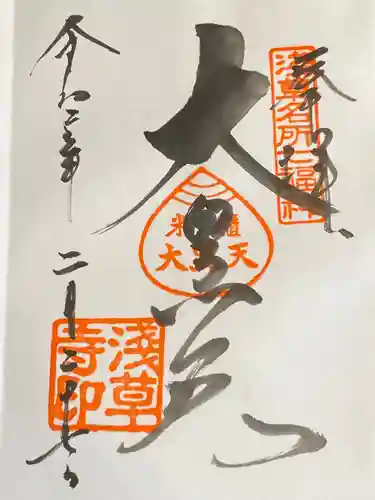 奉拝
浅草名所七福神
大黒天
米櫃
大黒天
浅草
寺印
令和三年
二月二十七日